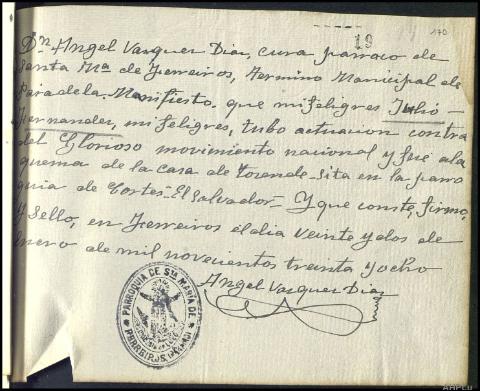 19
170
Dn. Angel Vasquez Dias, cura parraco de
Santa Mª de Ferreiros, termino Municipal de
Paradela. Manifiesto. que mi feligres Julio -
Hernandez, mi feligres, tubo actuacion contra
del Glorioso movimiento nacional y fue a la
quema de la casa de Torende. Sita en la parro
quia de Cortes. El Salvador. - Y que conste, firmo,
y sello, en Ferreiros el dia veinte y dos de
Enero de mil novecientos treinta y ocho
Angel Vasquez Dias
PARROQUIA DE Sta MARIA DE
FERREIROS
AHPLu